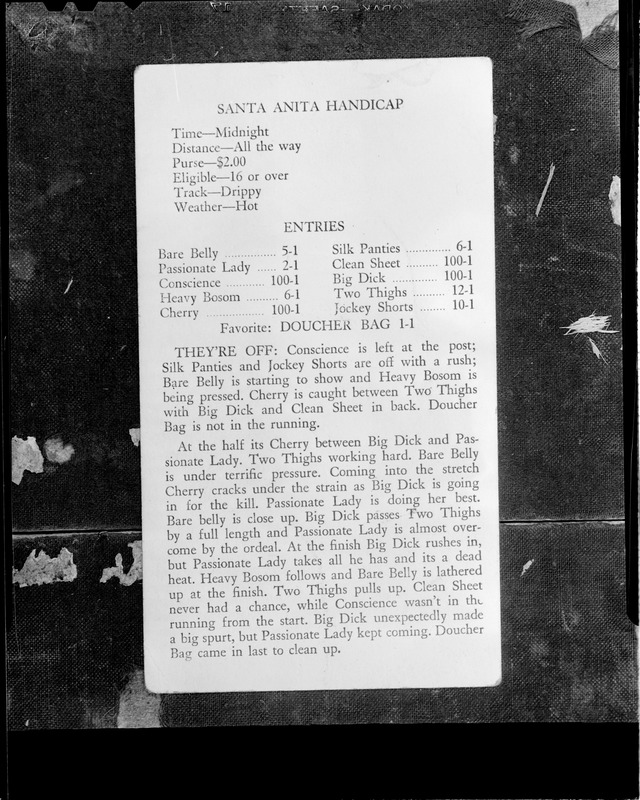 SANTA ANITA HANDICAP
Time—Midnight
Distance—All the way
Purse—$2.00
Eligible—16 or over
Track—Drippy
Weather—Hot
ENTRIES
Bare Belly ................ 5-1
Passionate Lady ...... 2-1
Conscience ............ 100-1
Heavy Bosom .......... 6-1
Cherry .................. 100-1
Silk Panties .............. 6-1
Clean Sheet .......... 100-1
Big Dick .............. 100-1
Two Thighs .......... 12-1
Jockey Shorts ........ 10-1
Favorite: DOUCHER BAG 1-1
THEY'RE OFF: Conscience is left at the post;
Silk Panties and Jockey Shorts are off with a rush;
Bare Belly is starting to show and Heavy Bosom is
being pressed. Cherry is caught between Two Thighs
with Big Dick and Clean Sheet in back. Doucher
Bag is not in the running.
At the half its Cherry between Big Dick and Pas-
sionate Lady. Two Thighs working hard. Bare Belly
is under terrific pressure. Coming into the stretch
Cherry cracks under the strain as Big Dick is going
in for the kill. Passionate Lady is doing her best.
Bare belly is close up. Big Dick passes Two Thighs
by a full length and Passionate Lady is almost over-
come by the ordeal. At the finish Big Dick rushes in,
but Passionate Lady takes all he has and its a dead
heat. Heavy Bosom follows and Bare Belly is lathered
up at the finish. Two Thighs pulls up. Clean Sheet
never had a chance, while Conscience wasn't in the
running from the start. Big Dick unexpectedly made
a big spurt, but Passionate Lady kept coming. Doucher
Bag came in last to clean up.